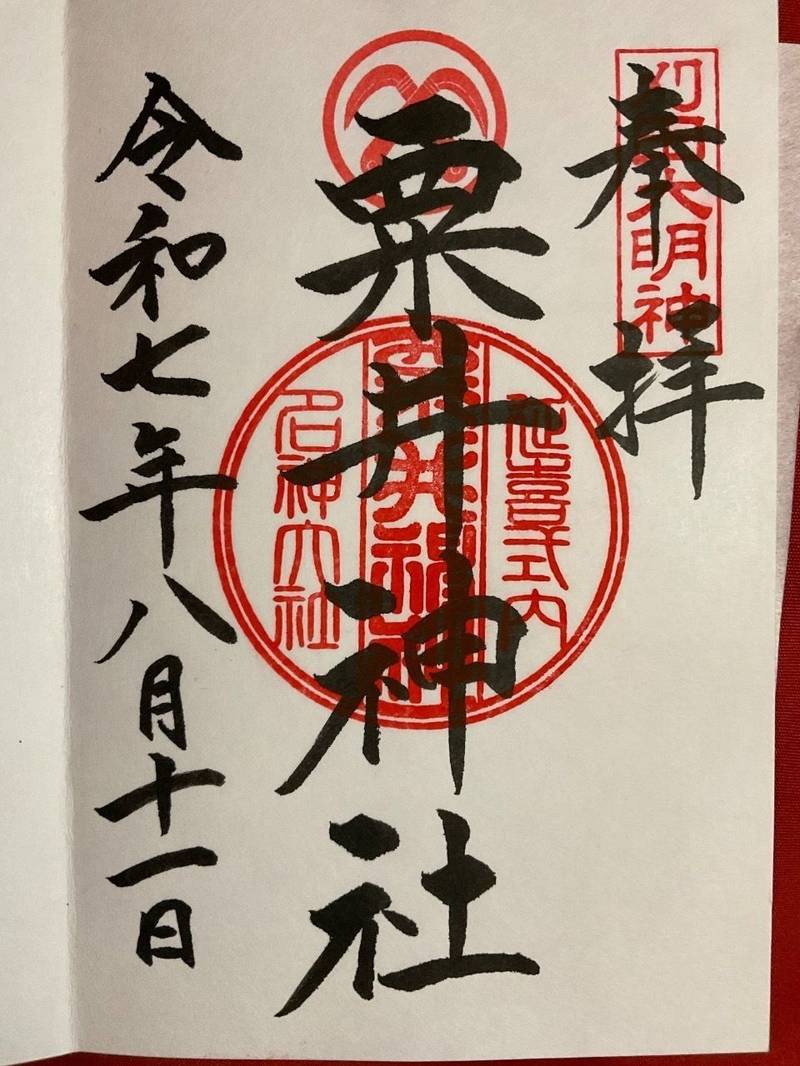 奉拝
刈田大明神
粟井神社
延喜式内
粟井神社
名神大社
令和七年八月十一日